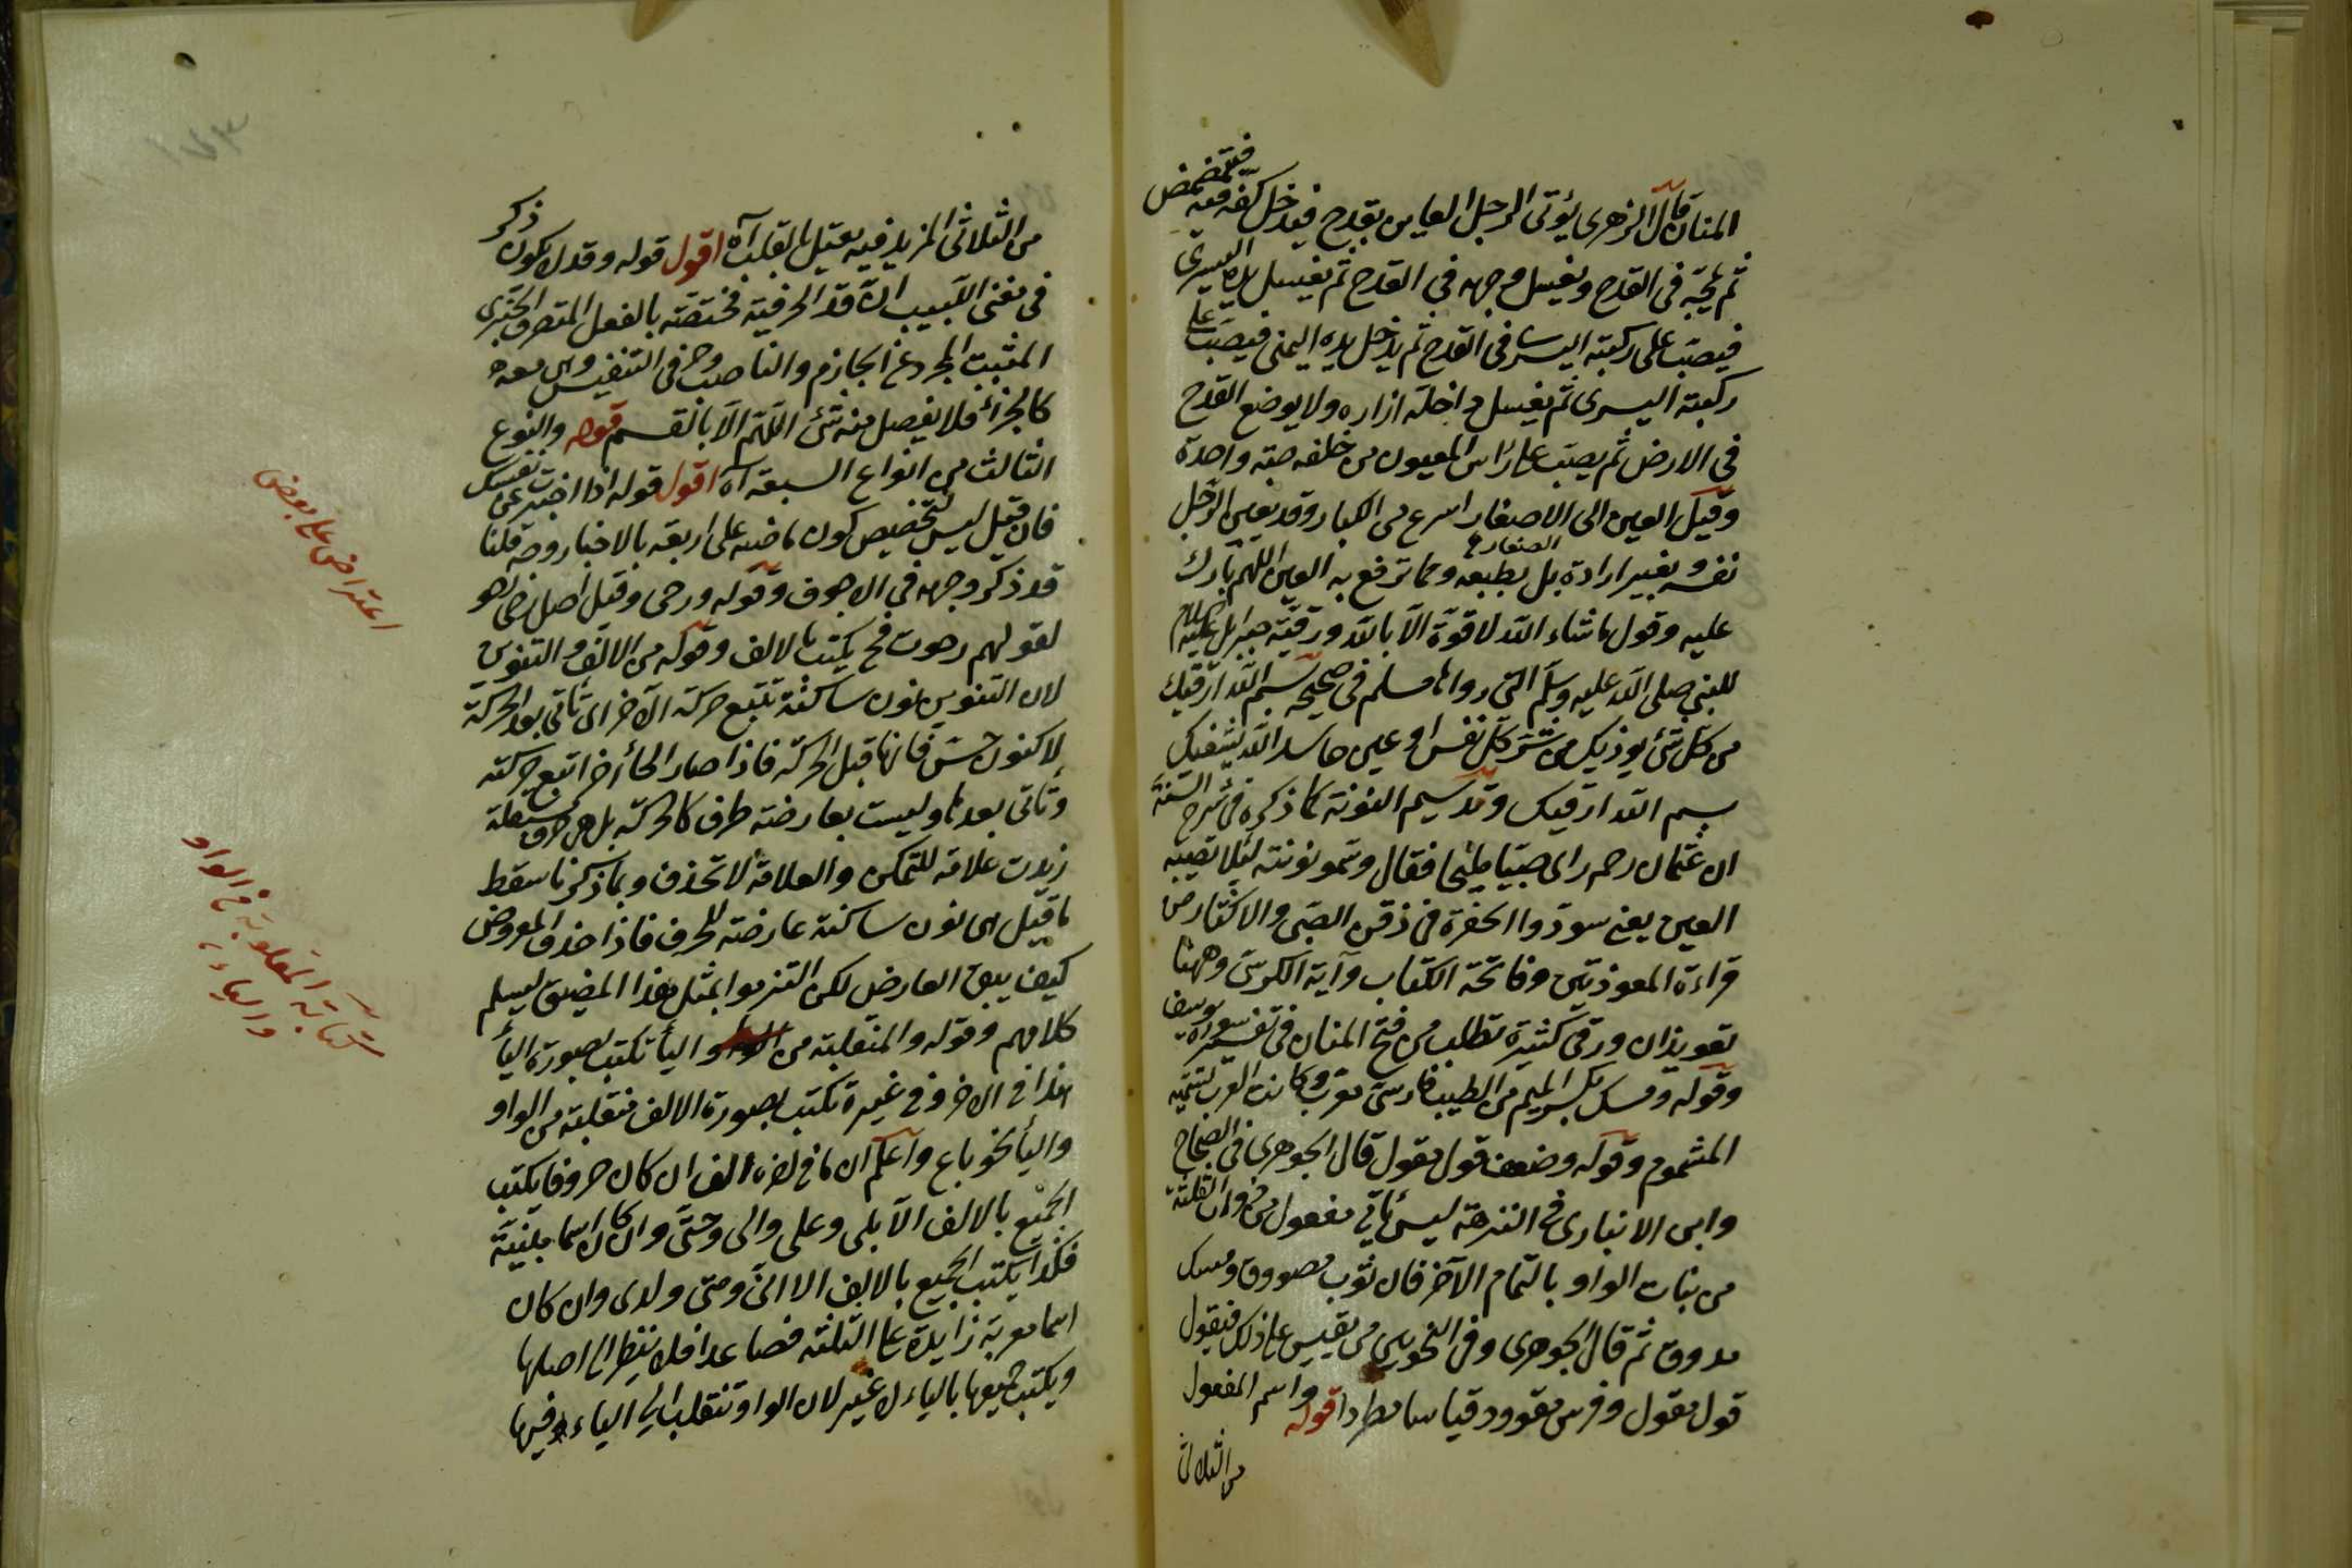 المنان قال الزهرى يؤتى الرجل العاين بقدح فيدخل كفه فيه فيتمضمض
ثم يمجّه فى القدح ويغسل وجهه فى القدح ثم يغسل يده اليسرى
فيصبّ على ركبته اليسرى فى القدح ثم يدخل يده اليمنى فيصبّ على
ركبته اليسرى ثم يغسل داخلة ازاره ولا يوضع القدح
فى الارض ثم يصبّ على رأس المعيون من خلفه صبة واحدة
وقيل العين الى الاصغار اسرع من الكبار وقد يعين الرجل
الصغار
نفسه بغير ارادة بل بطبعه ومما ترفع به العين اللهم بارك
عليه وقول ماشاء الله لا قوة الا بالله ورقية جبرايل عليه السلام
للنبى صلى الله عليه وسلم التى رواها مسلم فى صحيحه بسم الله ارقيك
من كل شئ يوذيك من شر كل نفس او عين حاسد الله يشفيك
بسم الله ارقيك وتدسيم النونة كما ذكره فى شرح السنة
ان عثمان رحم راى صبيا مليحا فقال دسمو نونته لئلا تصيبه
العين يعنى سودوا الحفرة فى ذقن الصبى والاكثار من
قراءة المعوذتين وفاتحة الكتاب وآية الكرسى وههنا
تعويذات ورقى كثيرة تطلب من فتح المنان فى تفسير سورة يوسف
وقوله ومسك بكسر الميم من الطيب فارسى معرب وكانت العرب تسميه
المشموم وقوله وضعف قول مقول قال الجوهرى فى الصحاح
وابن الانبارى فى النزهة ليس يأتى مفعول من ذوات الثلثة
من بنات الواو بالتمام الآخر فان ثوب مصووق ومسك
مدووق ثم قال الجوهرى وفى النحويين من يقيس على ذلك فيقول
قول مقول وفرس مقوود قياسا مطردا قوله واسم المفعول
من الثلاثى
من الثلاثى المزيد فيه يعتل بالقلب آه اقول قوله وقد لا يكون ذكر
فى مغنى اللبيب ان قد الحرفية مختصّة بالفعل المتصرف الخبرى
المثبت المجرد عن الجازم والناصب وحرفى التنفيس وهى معه
كالجزء فلا يفصل منه شئ اللهم الا بالقسم قوله والنوع
الثالث من انواع السبعة آه اقول قوله اذا اخبرت عن نفسك
فان قيل ليس تخصيص كون ماضيه على اربعة بالاخبار وجه قلنا
قد ذكر وجهه فى الاجوف وقوله ورحى وقيل اصل رحى رحو
لقولهم رحوت فح يكتب بالالف وقوله من الالف والتنوين
لان التنوين نون ساكنة تتبع حركة الآخر اى تأتى بعد الحركة
لا كنون حسن فانها قبل الحركة فاذا صار الحا آخرا تتبع حركته
وتأتى بعدها وليست بعارضة طرف كالحركة بل هى حرف مستقلة
زيدت علامة للتمكن والعلامة لا تحذف وبما ذكرنا سقط
ما قيل هى نون ساكنة عارضة للحرف فاذا حذف المعروض
كيف يبقى العارض لكن التزموا بمثل هذا المضيق ليسلم
كلامهم وقوله والمنقلبة من الواو واليأ تكتب بصورة اليأ
هذا فى الاخر وفى غيره تكتب بصورة الالف منقلبة من الواو
واليأ نحو باع واعلم ان ما فى اخره الف ان كان حروفا يكتب
الجميع بالالف الا بلى وعلى والى وحتى وان كان اسما مبنية
فكذا يكتب الجميع بالالف الا انى ومتى ولدى وان كان
اسما معربة زايدة على الثلثة فصاعدا فلا ينظر الى اصلها
ويكتب جميعها بالياء لا غير لان الواو تنقلب الى الياء فيها
اعتراض على بعض
كتابة المقلوبة فى الواو
والياء